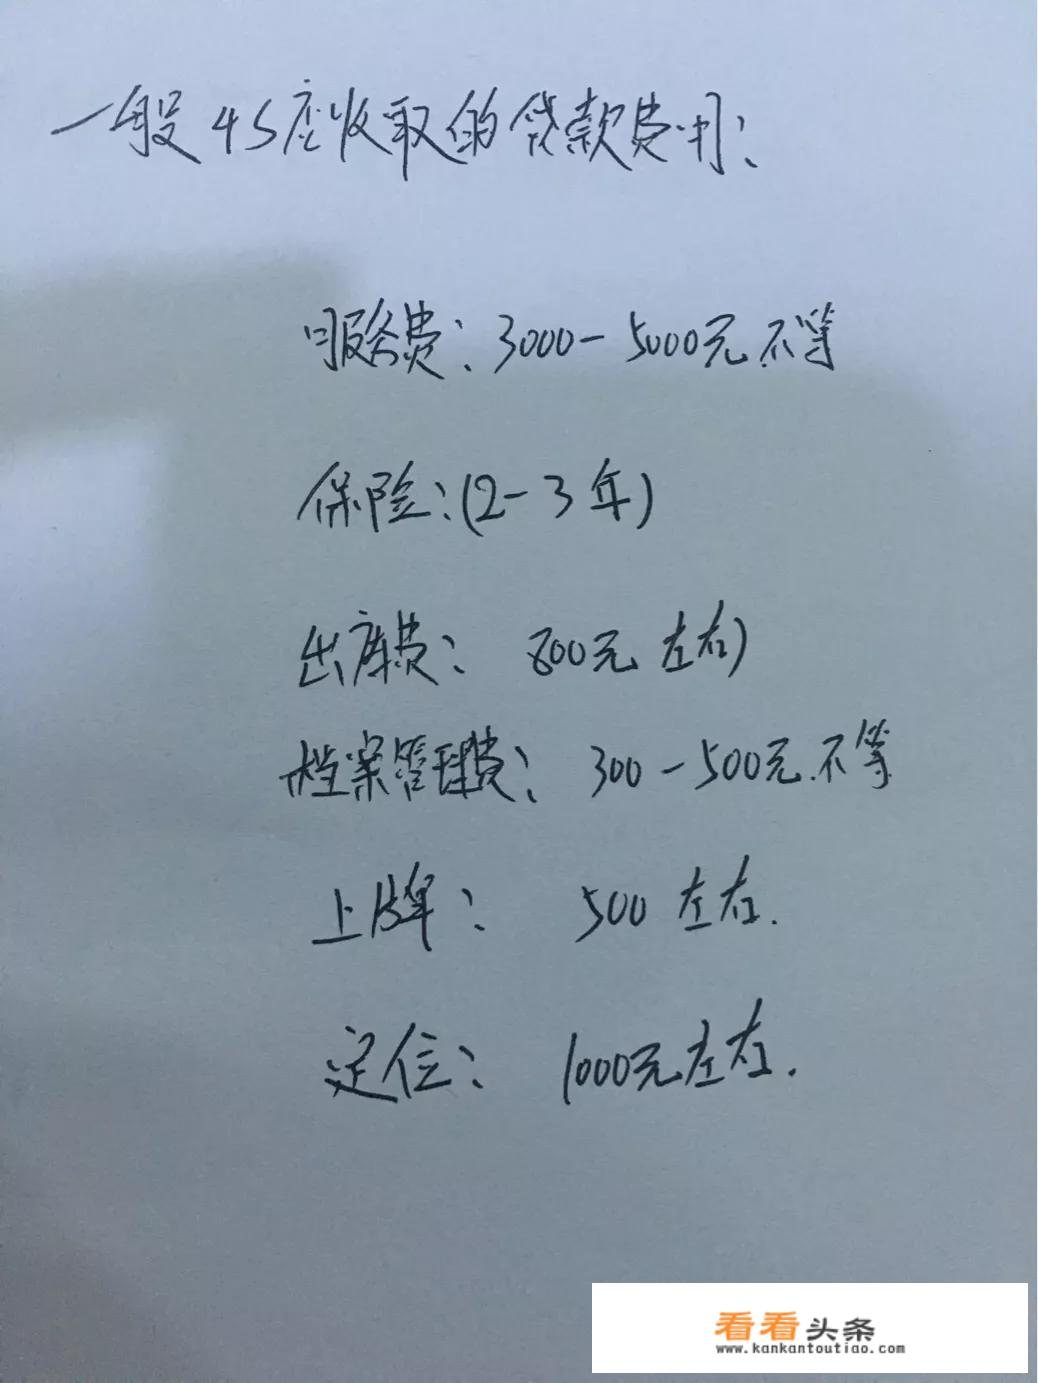 一般4S店收取的贷款费用：
服务费：3000-5000元不等
保险：(2-3年)
出库费：800元左右)
档案管理费：300-500元.不等
上牌：500左右.
定位：1000元左右.
看看头条
www.kankantoutiao.com